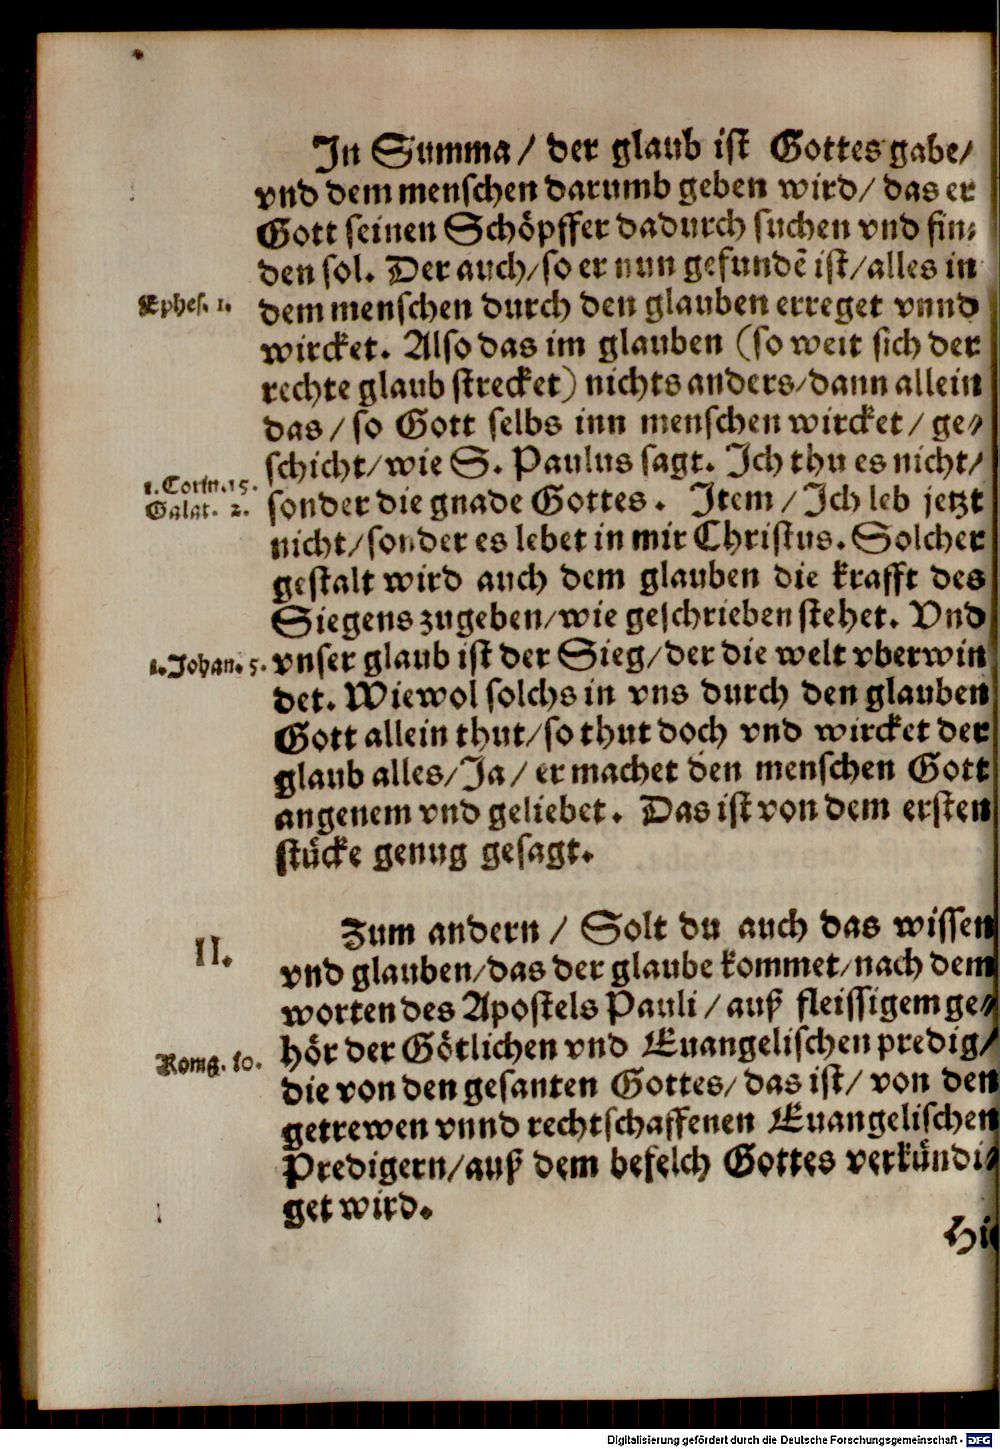 In Summa / der glaub ist Gottes gabe /
vnd dem menschen darumb geben wird / das er
Gott seinen Schöpffer dadurch suchen vnd fin⸗
den sol. Der auch / so er nun gefundē ist / alles in
Ephes. 1.
dem menschen durch den glauben erreget vnnd
wircket. Also das im glauben (so weit sich der
rechte glaub strecket) nichts anders / dann allein
das / so Gott selbs inn menschen wircket / ge⸗
schicht / wie S. Paulus sagt. Ich thu es nicht /
1. Corin. 15.
Galat. 2.
sonder die gnade Gottes. Item / Ich leb jetzt
nicht / sonder es lebet in mir Christus. Solcher
gestalt wird auch dem glauben die krafft des
Siegens zugeben / wie geschrieben stehet. Vnd
1. Johan. 5.
vnser glaub ist der Sieg / der die welt vberwin
det. Wiewol solchs in vns durch den glauben
Gott allein thut / so thut doch vnd wircket der
glaub alles / Ja / er machet den menschen Gott
angenem vnd geliebet. Das ist von dem ersten
stücke genug gesagt.
II.
Zum andern / Solt du auch das wissen
vnd glauben / das der glaube kommet / nach dem
worten des Apostels Pauli / auß fleissigem ge⸗
Roma. 10.
hör der Götlichen vnd Euangelischen predig /
die von den gesanten Gottes / das ist / von den
getrewen vnnd rechtschaffenen Euangelischen
Predigern / auß dem befelch Gottes verkündi⸗
get wird.
Hie
Digitalisierung gefördert durch die Deutsche Forschungsgemeinschaft - DFG